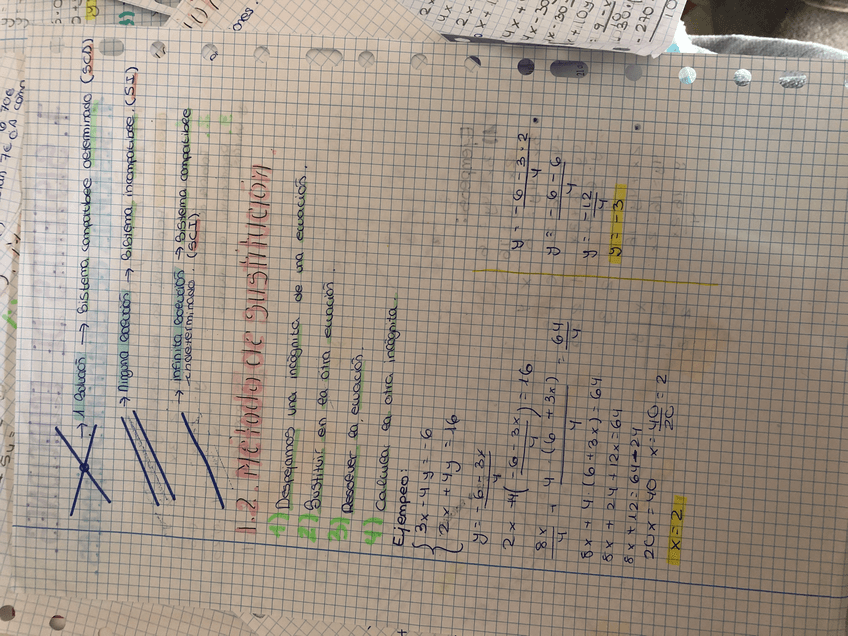 → 1 solución → Sistema compatible determinado (SCD)
→ Ninguna solución → Sistema incompatible. (SI)
→ infinita solución → Sistema compatible
indeterminado. (SCI)
1.2. Método de sustitución
1) Despejamos una incógnita de una ecuación.
2) Sustituir en la otra ecuación.
3) Resolver la ecuación.
4) Calcular la otra incógnita.
Ejemplo:
3x - 4y = 6
2x + 4y = 16
y = -6-3x/4
2x + 4(-6-3x/4) = 16
8x/4 + 4·(6+3x)/4 = 64/4
8x + 4(6+3x) = 64
8x + 24 + 12x = 64
8x + 12 = 64-24
20x = 40 x = 40/20 = 2
x = 2
y = -6-3·2/4
y = -6-6/4
y = -12/4
y = -3